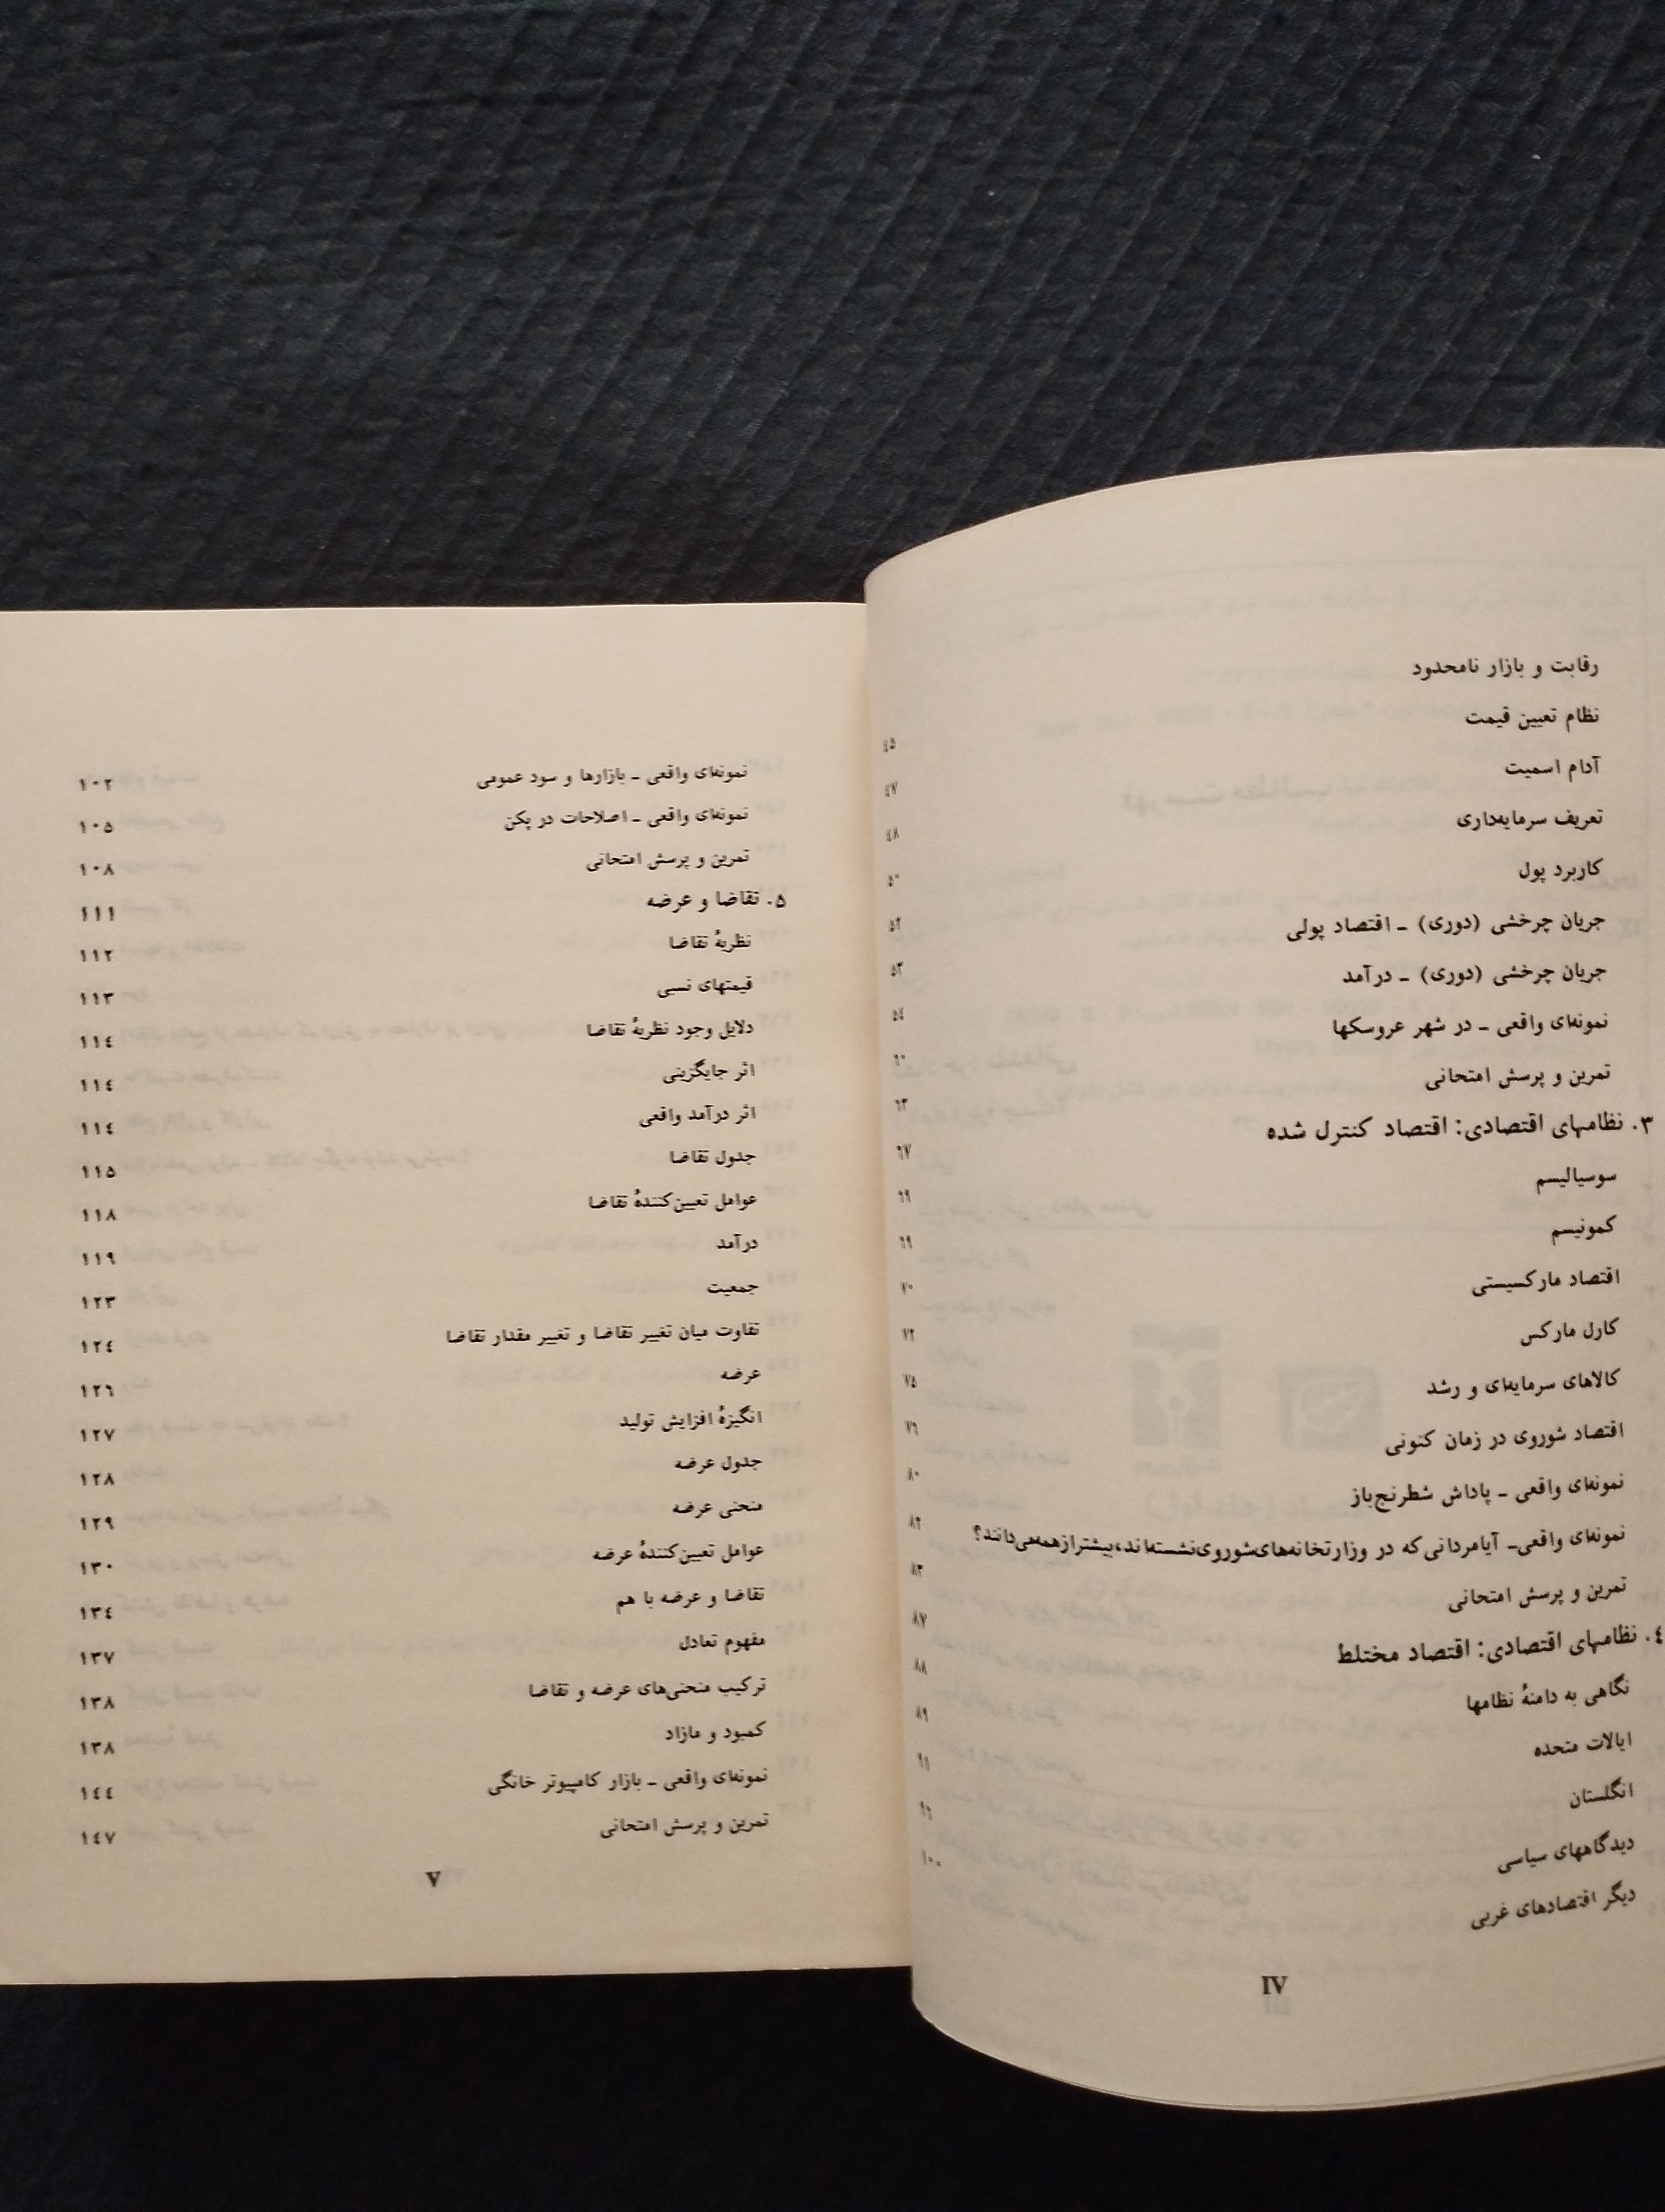 رقابت و بازار نامحدود ٤٥
نظام تعیین قیمت ٤٧
آدام اسمیت ٤٨
تعریف سرمایه‌داری ٥٠
کاربرد پول ٥٢
جریان چرخشی (دوری) ـ اقتصاد پولی ٥٣
جریان چرخشی (دوری) ـ درآمد ٥٤
نمونه‌ای واقعی ـ در شهر عروسکها ٦٠
تمرین و پرسش امتحانی ٦٣
٣. نظامهای اقتصادی: اقتصاد کنترل شده ٦٧
سوسیالیسم ٦٩
کمونیسم ٦٩
اقتصاد مارکسیستی ٧٠
کارل مارکس ٧٢
کالاهای سرمایه‌ای و رشد ٧٥
اقتصاد شوروی در زمان کنونی ٧٦
نمونه‌ای واقعی ـ پاداش شطرنج‌باز ٨٠
نمونه‌ای واقعی ـ آیا مردانی که در وزارتخانه‌های شوروی نشسته‌اند، بیشتر از همه می‌دانند؟ ٨٢
تمرین و پرسش امتحانی ٨٣
٤. نظامهای اقتصادی: اقتصاد مختلط ٨٧
نگاهی به دامنهٔ نظامها ٨٨
ایالات متحده ٨٩
انگلستان ٩١
دیدگاههای سیاسی ٩٦
دیگر اقتصادهای غربی ١٠٠
IV
نمونه‌ای واقعی ـ بازارها و سود عمومی ١٠٢
نمونه‌ای واقعی ـ اصلاحات در پکن ١٠٥
تمرین و پرسش امتحانی ١٠٨
٥. تقاضا و عرضه ١١١
نظریهٔ تقاضا ١١٢
قیمتهای نسبی ١١٣
دلایل وجود نظریهٔ تقاضا ١١٤
اثر جایگزینی ١١٤
اثر درآمد واقعی ١١٤
جدول تقاضا ١١٥
عوامل تعیین‌کنندهٔ تقاضا ١١٨
درآمد ١١٩
جمعیت ١٢٣
تفاوت میان تغییر تقاضا و تغییر مقدار تقاضا ١٢٤
عرضه ١٢٦
انگیزهٔ افزایش تولید ١٢٧
جدول عرضه ١٢٨
منحنی عرضه ١٢٩
عوامل تعیین‌کنندهٔ عرضه ١٣٠
تقاضا و عرضه با هم ١٣٤
مفهوم تعادل ١٣٧
ترکیب منحنی‌های عرضه و تقاضا ١٣٨
کمبود و مازاد ١٣٨
نمونه‌ای واقعی ـ بازار کامپیوتر خانگی ١٤٤
تمرین و پرسش امتحانی ١٤٧
V